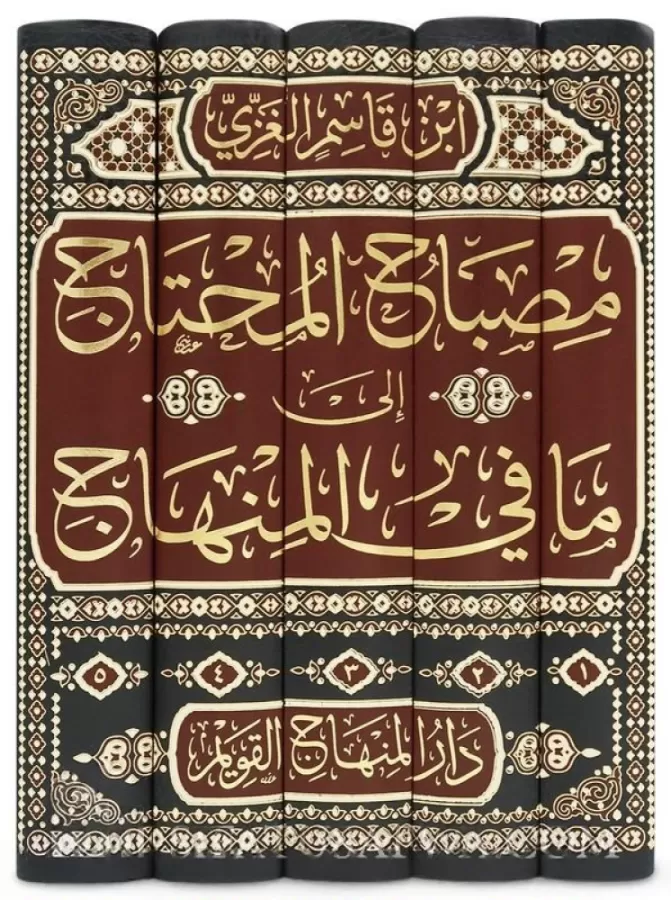 ابْنُ قَاسِمٍ الغَزِّيّ
مِصْبَاحُ المُحْتَاجِ
إِلَى
مَا فِي المِنْهَاجِ
١ ٢ ٣ ٤ ٥
دَارُ المِنْهَاجِ القَوِيْم